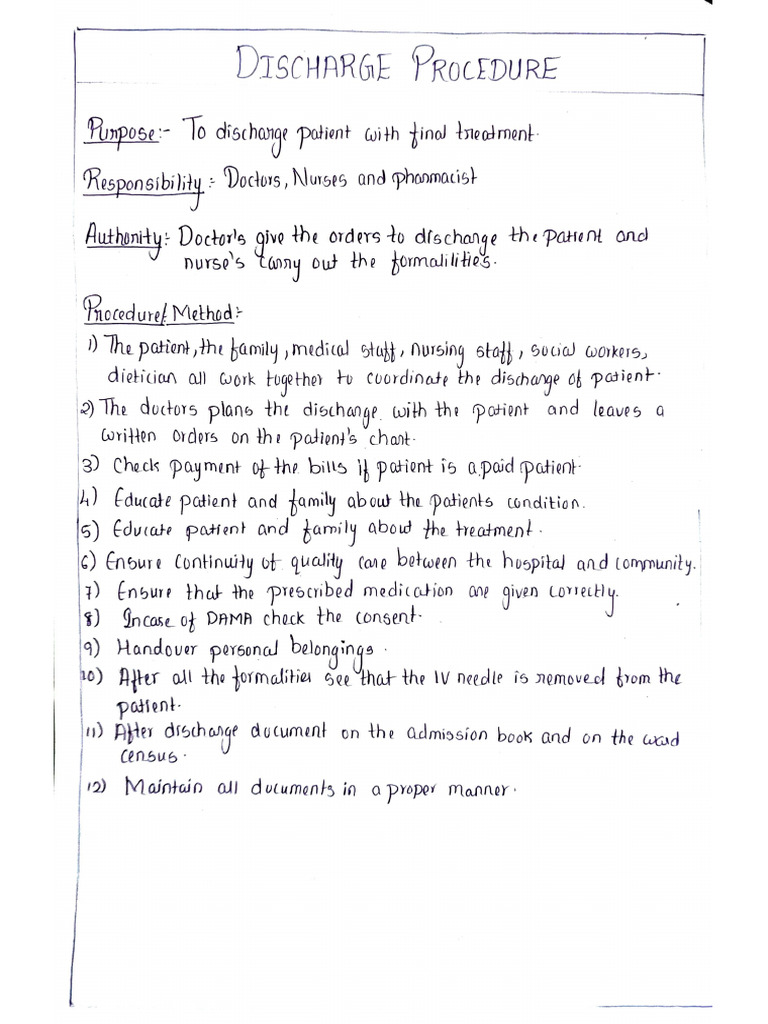 DISCHARGE PROCEDURE
Purpose:- To discharge patient with final treatment.
Responsibility:- Doctors, Nurses and pharmacist
Authority:- Doctor's give the orders to discharge the patient and
nurse's carry out the formalilities.
Procedure/Method:-
1) The patient, the family, medical staff, nursing staff, social workers,
dietician all work together to coordinate the discharge of patient.
2) The doctors plans the discharge with the patient and leaves a
written orders on the patient's chart.
3) Check payment of the bills if patient is a paid patient.
4) Educate patient and family about the patients condition.
5) Educate patient and family about the treatment.
6) Ensure continuity of quality care between the hospital and community.
7) Ensure that the prescribed medication are given correctly.
8) Incase of DAMA check the consent.
9) Handover personal belongings.
10) After all the formalities see that the IV needle is removed from the
patient.
11) After discharge document on the admission book and on the ward
census.
12) Maintain all documents in a proper manner.